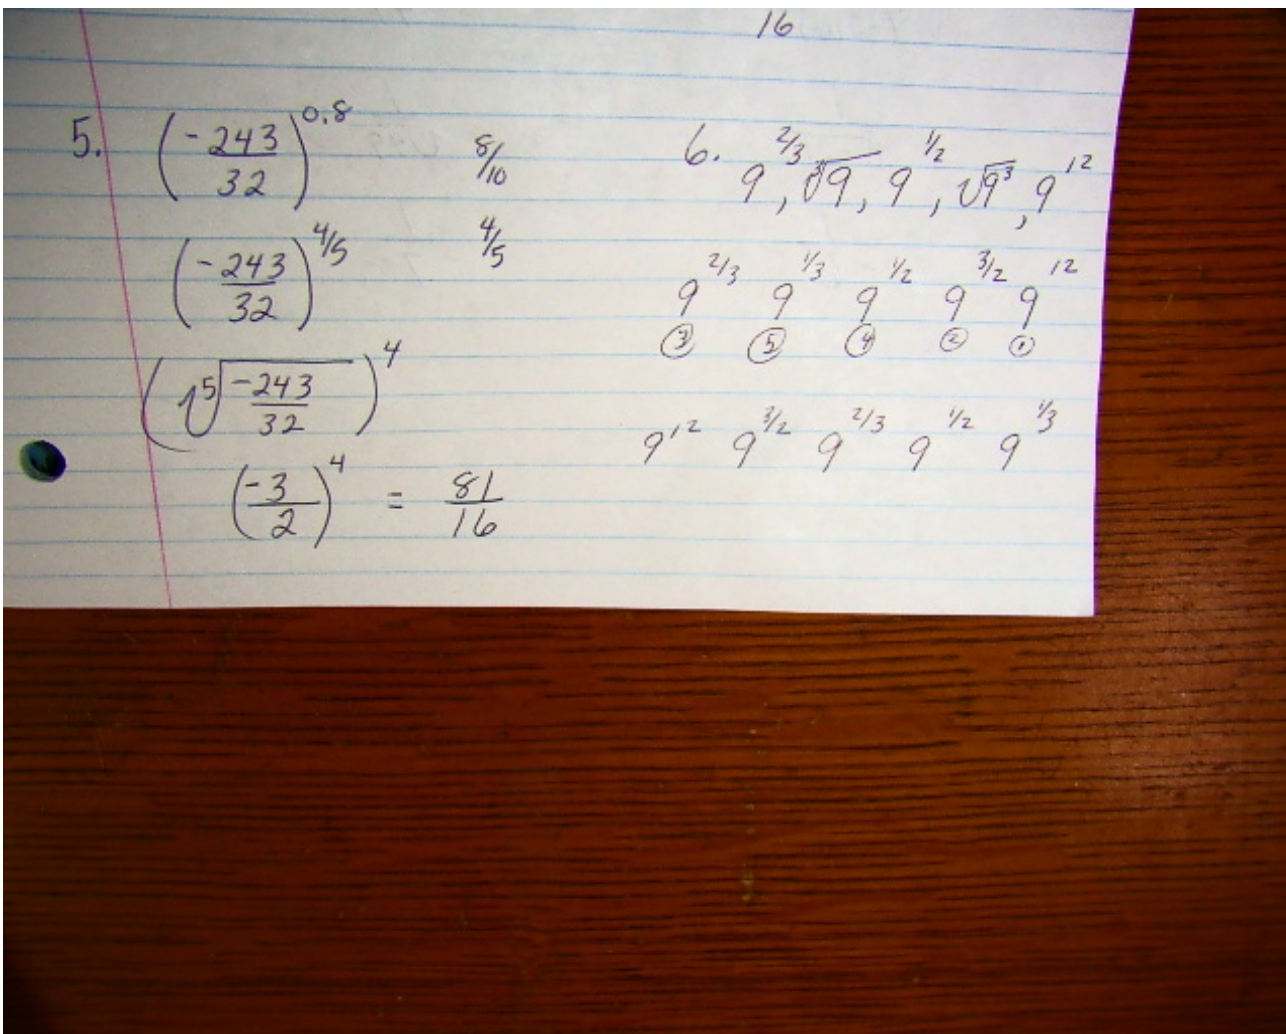 16
5. (-243/32)^0.8 8/10
(-243/32)^4/5 4/5
(⁵√(-243/32))^4
(-3/2)^4 = 81/16
6. 9^2/3, ³√9, 9^1/2, √9³, 9^12
9^2/3 9^1/3 9^1/2 9^3/2 9^12
③ ⑤ ④ ② ①
9^12 9^3/2 9^2/3 9^1/2 9^1/3